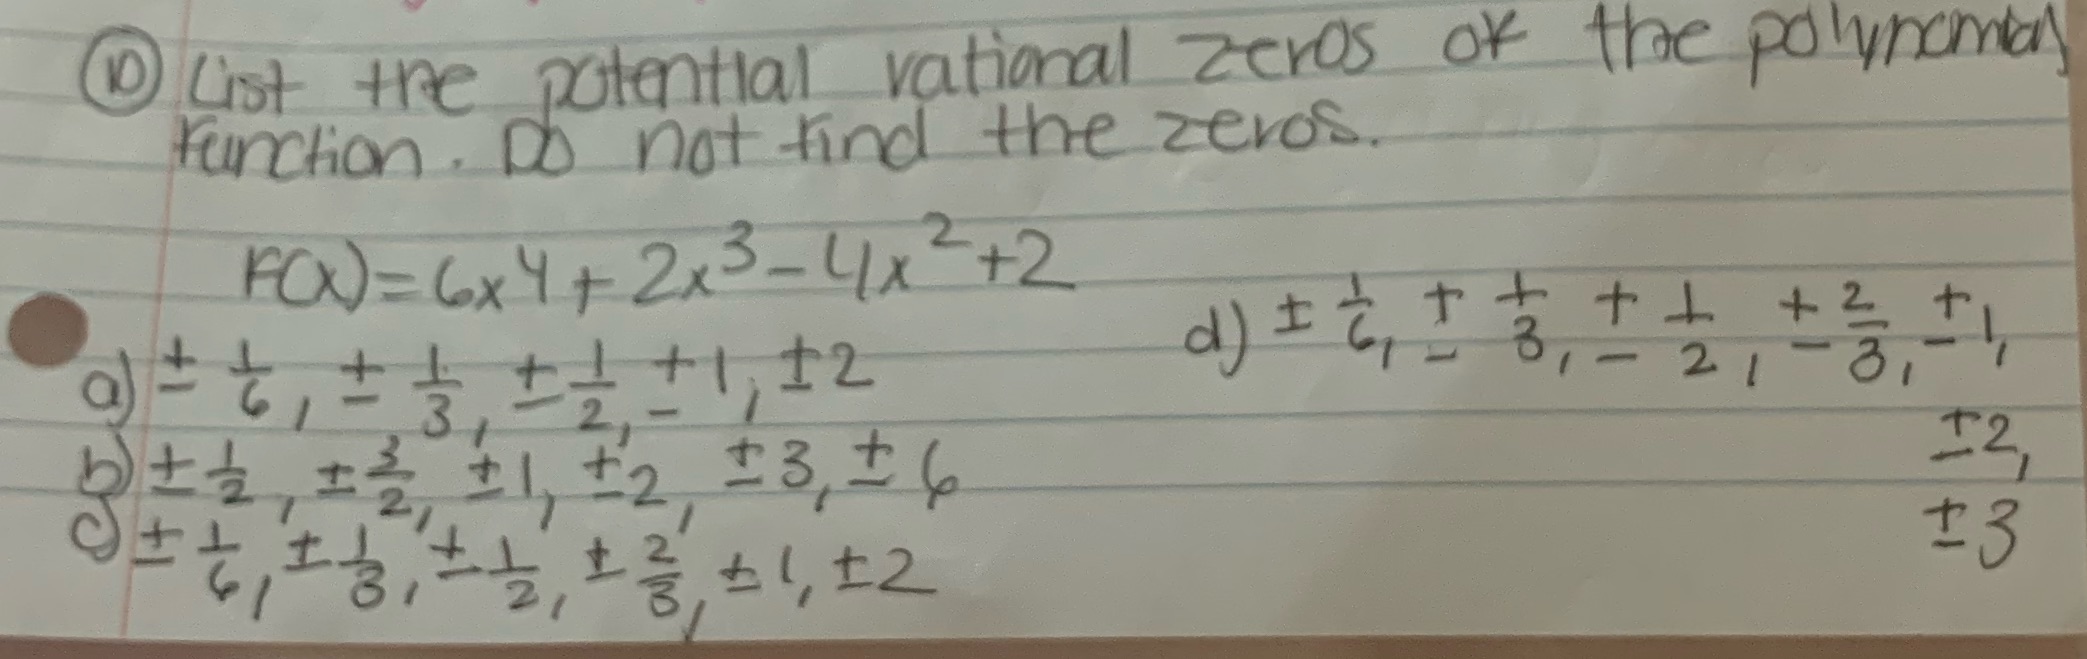 ⑩ List the potential rational zeros of the polynomial
function. Do not find the zeros.
F(x)=6x⁴+2x³-4x²+2
a) ± 1/6, ± 1/3, ± 1/2, ± 1, ±2
b) ± 1/2, ± 3/2, ±1, ±2, ±3, ± 6
c) ± 1/6, ± 1/3, ± 1/2, ± 2/3, ±1, ±2
d) ± 1/6, ± 1/3, ± 1/2, ± 2/3, ±1,
±2,
±3